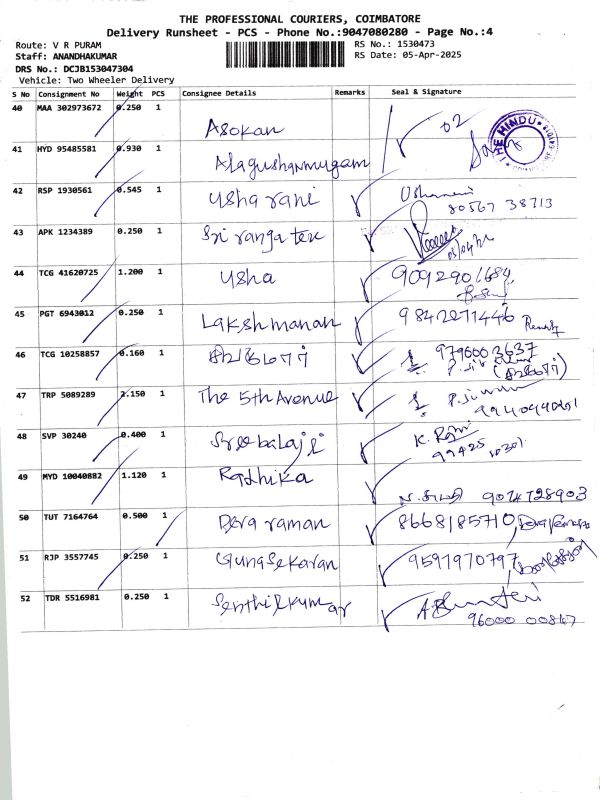 THE PROFESSIONAL COURIERS, COIMBATORE
Delivery Runsheet - PCS - Phone No.:9047080280 - Page No.:4
Route: V R PURAM RS No.: 1530473
Staff: ANANDHAKUMAR RS Date: 05-Apr-2025
DRS No.: DCJB153047304
Vehicle: Two Wheeler Delivery
S No Consignment No Weight PCS Consignee Details Remarks Seal & Signature
40 MAA 302973672 0.250 1 Asokan 02 THE HINDU
41 HYD 95485581 0.930 1 Alagushanmugam
42 RSP 1930561 0.545 1 usha rani 80567 38713
43 APK 1234389 0.250 1 Sri ranga tex
44 TCG 41620725 1.200 1 usha 9092901684
45 PGT 6943012 0.250 1 Lakshmanan 9842271446
46 TCG 10258857 0.160 1 9796003637
47 TRP 5089289 2.150 1 The 5th Avenue
48 SVP 30240 0.400 1 Sree balaji K. Rajni
49 MYD 10040882 1.120 1 Radhika 9074728903
50 TUT 7164764 0.500 1 Deva raman 8668185710
51 RJP 3557745 0.250 1 Gunasekaran 9597970797
52 TDR 5516981 0.250 1 Senthilkumar 96000 00867